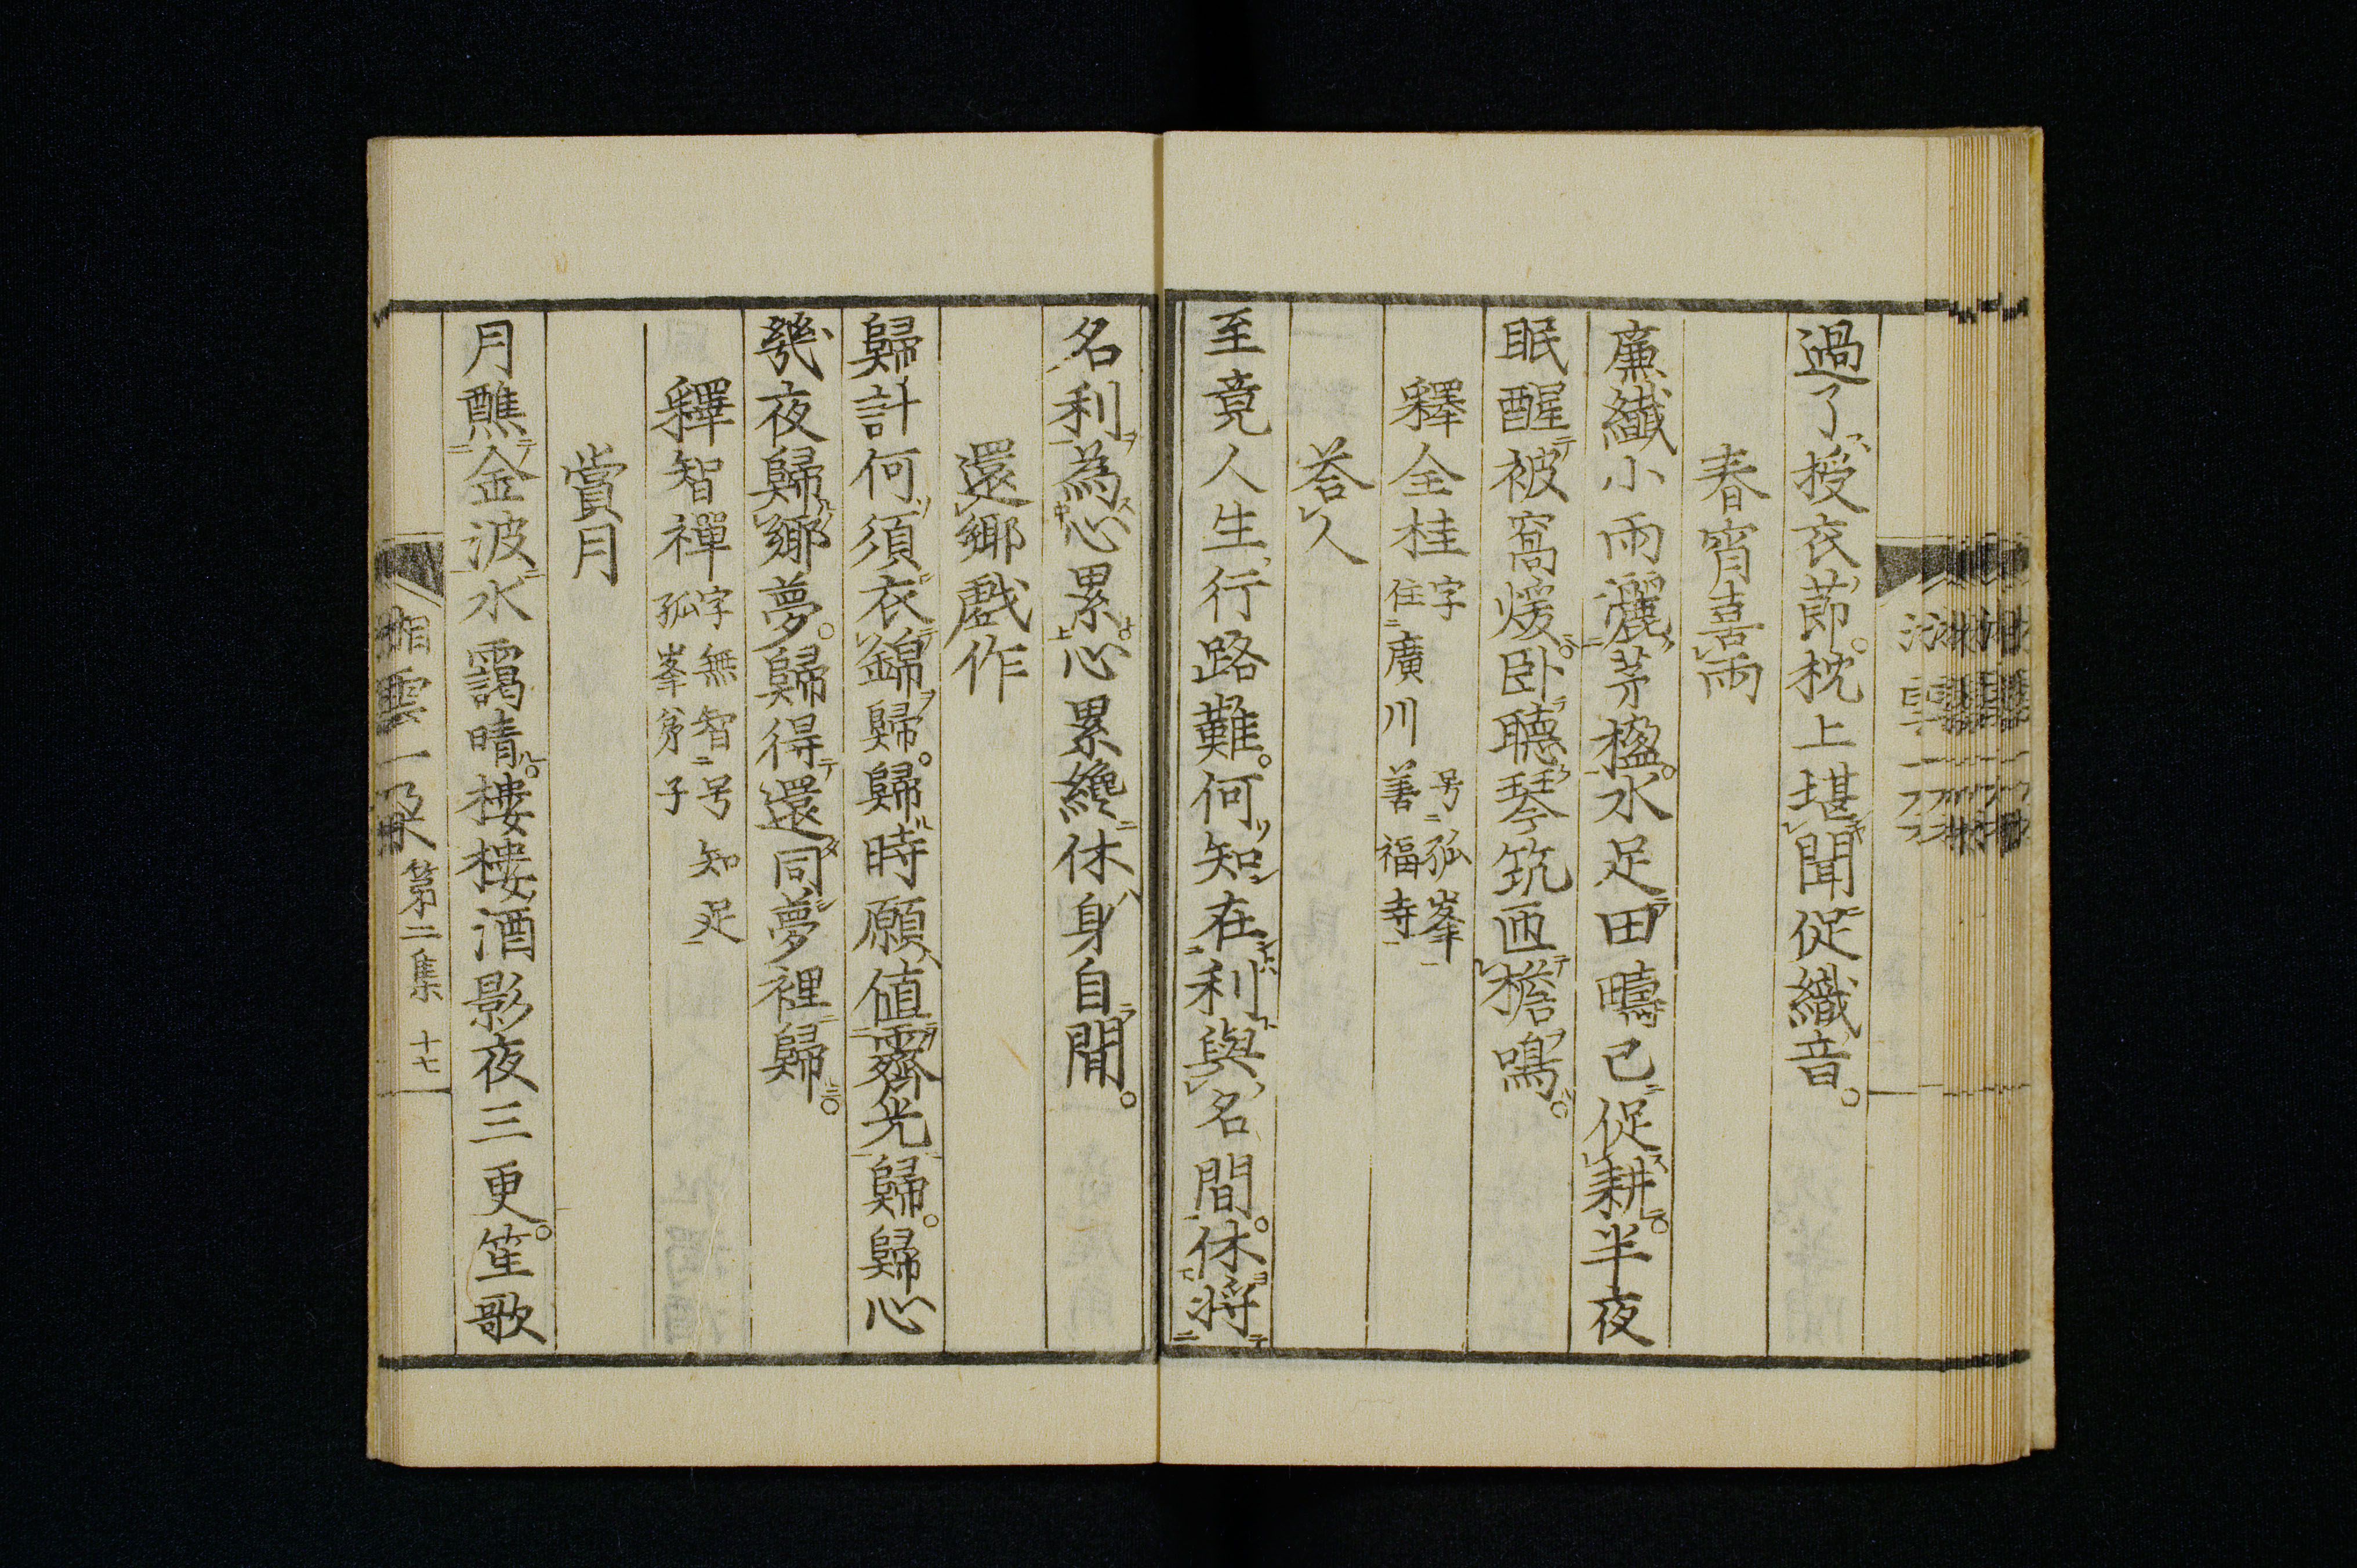 過了授衣莭枕上堪聞促織音
春宵喜雨
廉纖小雨灑茅楹水足田疇已促耕半夜
眠醒被窩煖臥聽琴筑匝檐鳴
釋全桂 字 号孤峯
住廣川善福寺
荅人
至竟人生行路難何知在利與名間休將
名利為心累心累纔休身自閒
還鄉戲作
歸計何須衣錦歸歸時願値霽光歸歸心
幾夜歸鄉夢歸得還同夢裡歸
釋智禪 字無智号知足
孤峯弟子
賞月
月醮金波水靄晴樓樓酒影夜三更笙歌
湘雲一朶 第二集 十七